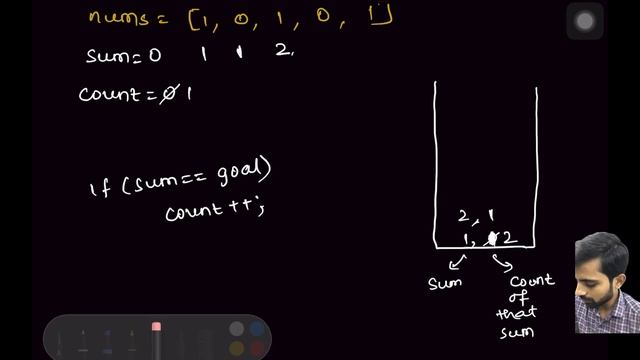 nums = [1, 0, 1, 0, 1]
sum = 0 1 1 2
count = 0 1
if (sum == goal)
count ++;
2, 1
1, 2
sum
count
of
that
sum